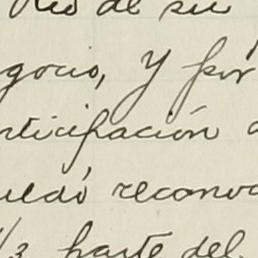 Rio de su
gocio, y por
rticipación a
uedó reconoc
1/3 parte del